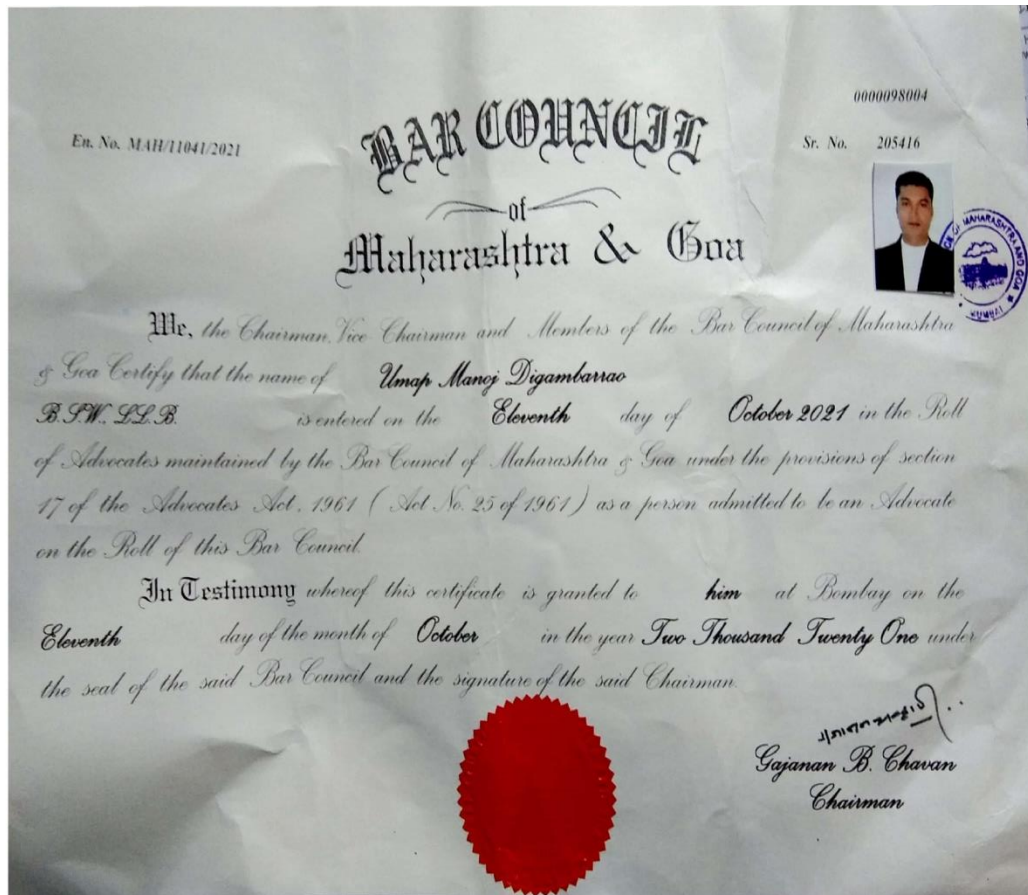 0000098004
En. No. MAH/11041/2021
Sr. No. 205416
BAR COUNCIL
of
Maharashtra & Goa
OF MAHARASHTRA AND GOA
MUMBAI
We, the Chairman, Vice Chairman and Members of the Bar Council of Maharashtra
& Goa Certify that the name of Umap Manoj Digambarrao
B.S.W., LL.B. is entered on the Eleventh day of October 2021 in the Roll
of Advocates maintained by the Bar Council of Maharashtra & Goa under the provisions of section
17 of the Advocates Act, 1961 ( Act No. 25 of 1961 ) as a person admitted to be an Advocate
on the Roll of this Bar Council.
In Testimony whereof this certificate is granted to him at Bombay on the
Eleventh day of the month of October in the year Two Thousand Twenty One under
the seal of the said Bar Council and the signature of the said Chairman.
Gajanan B. Chavan
Chairman